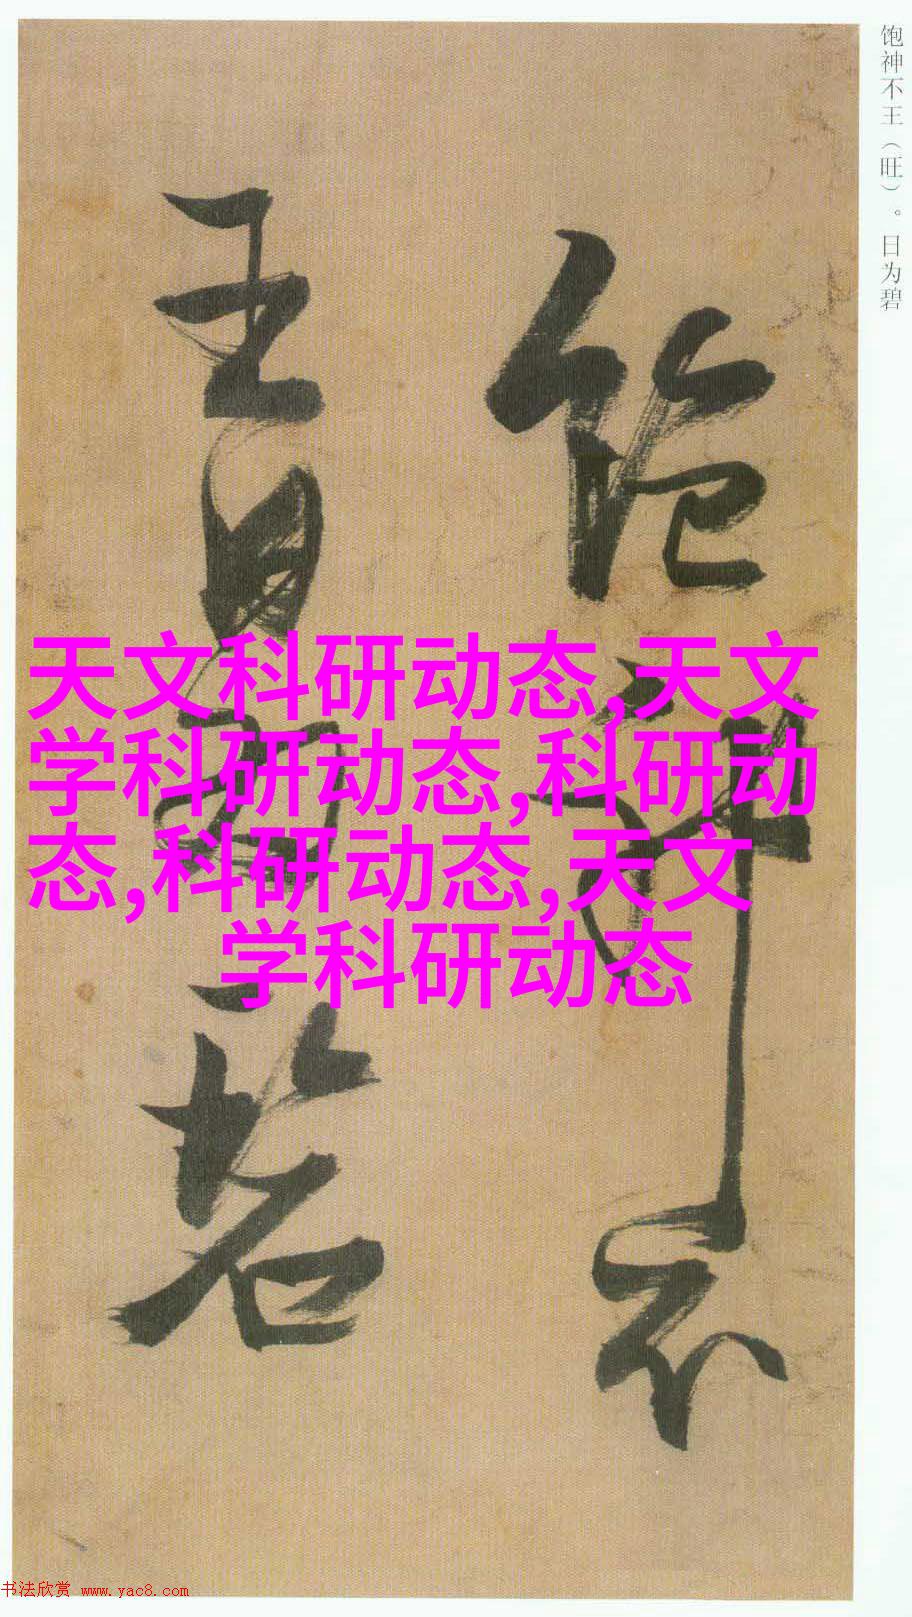 饱神不王（旺）。日为碧
饱神不
王日為
天文科研动态,天文
学科研动态,科研动
态,科研动态,天文
学科研动态
书法欣赏 www.yac8.com